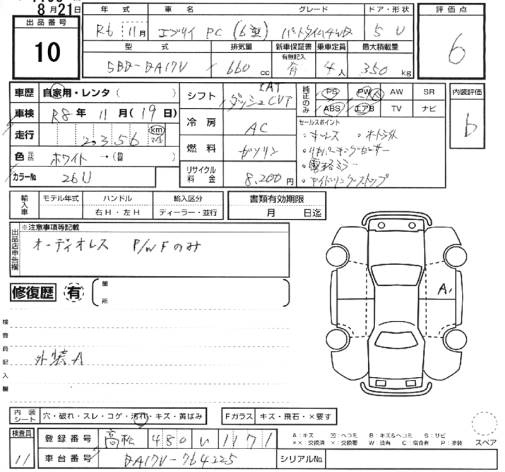 8月21日
年式 車名 グレード ドア・形状 評価点
出品番号
10
R6 11月 エブリイ PC (6型) パートタイム4WD 5 U
6
型式 排気量 新車保証書 乗車定員 最大積載量
有無記入
5BD-DA17V 660 cc 有 4人 350 kg
車歴 自家用・レンタ
車検 R8年 11月 (19日)
走行 2,356 km マイル
色 ホワイト
カラーNo 26U
シフト ダッシュ CVT
冷房 AC
燃料 ガソリン
リサイクル料金 8,200円
純正のみ PS PW AW SR
ABS エアB TV ナビ
セールスポイント
・キーレス
・アイドリングストップ
内装評価
b
輸入車 モデル年式 ハンドル 輸入区分
右H・左H ディーラー・並行
書類有効期限
月 日迄
出品店申告欄
※注意事項等記載
オーディオレス P/W Fのみ
修復歴 有 箇所
検査員記入欄
外装A
A1
内装シート 穴・破れ・スレ・コゲ・汚れ・キズ・黄ばみ
Fガラス キズ・飛石・×要す
検査員
11
登録番号 高松 480 い 1171
車台番号 DA17V-764225
シリアルNo.
スペア